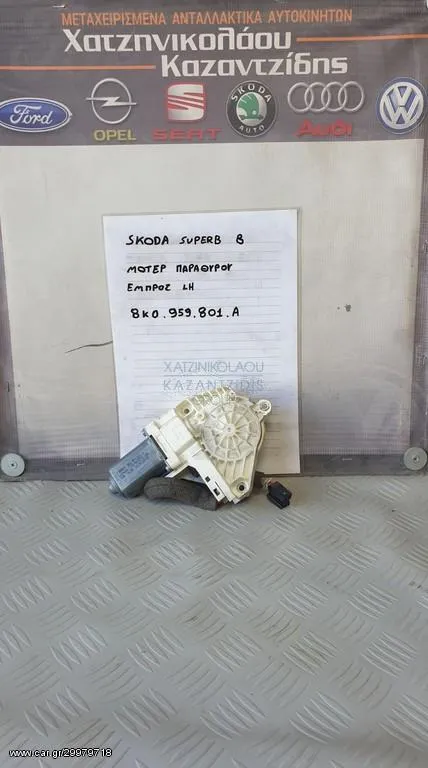 ΜΕΤΑΧΕΙΡΙΣΜΕΝΑ ΑΝΤΑΛΛΑΚΤΙΚΑ ΑΥΤΟΚΙΝΗΤΩΝ
Χατζηνικολάου
Καζαντζίδης
Ford
OPEL
SEAT
SKODA
AUTO
Audi
SKODA SUPERB B
ΜΟΤΕΡ ΠΑΡΑΘΥΡΟΥ
ΕΜΠΡΟΣ LH
8K0.959.801.A
XATZINIKOLAOU
KAZANTZIDIS
www.car.gr/29979718